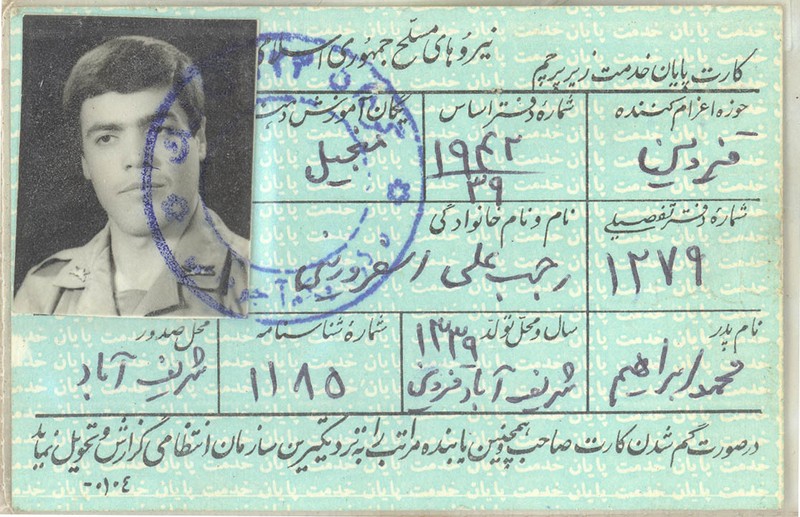 نیروهای مسلح جمهوری اسلامی
کارت پایان خدمت زیر پرچم
حوزه اعزام کننده
قزوین
شماره دفتر اساس
۱۹۴۲
۳۹
یگان آموزش دهنده
منجیل
شماره دفتر تفصیلی
۱۲۷۹
نام و نام خانوادگی
رجب علی
نام پدر
محمد ابراهیم
سال و محل تولد
۱۳۳۹
شریف آباد قزوین
شماره شناسنامه
۱۱۸۵
محل صدور
شریف آباد
درصورت گم شدن کارت صاحب و همچنین یابنده مراتب را به نزدیکترین سازمان انتظامی گزارش و تحویل نماید
۰۱۰۴-